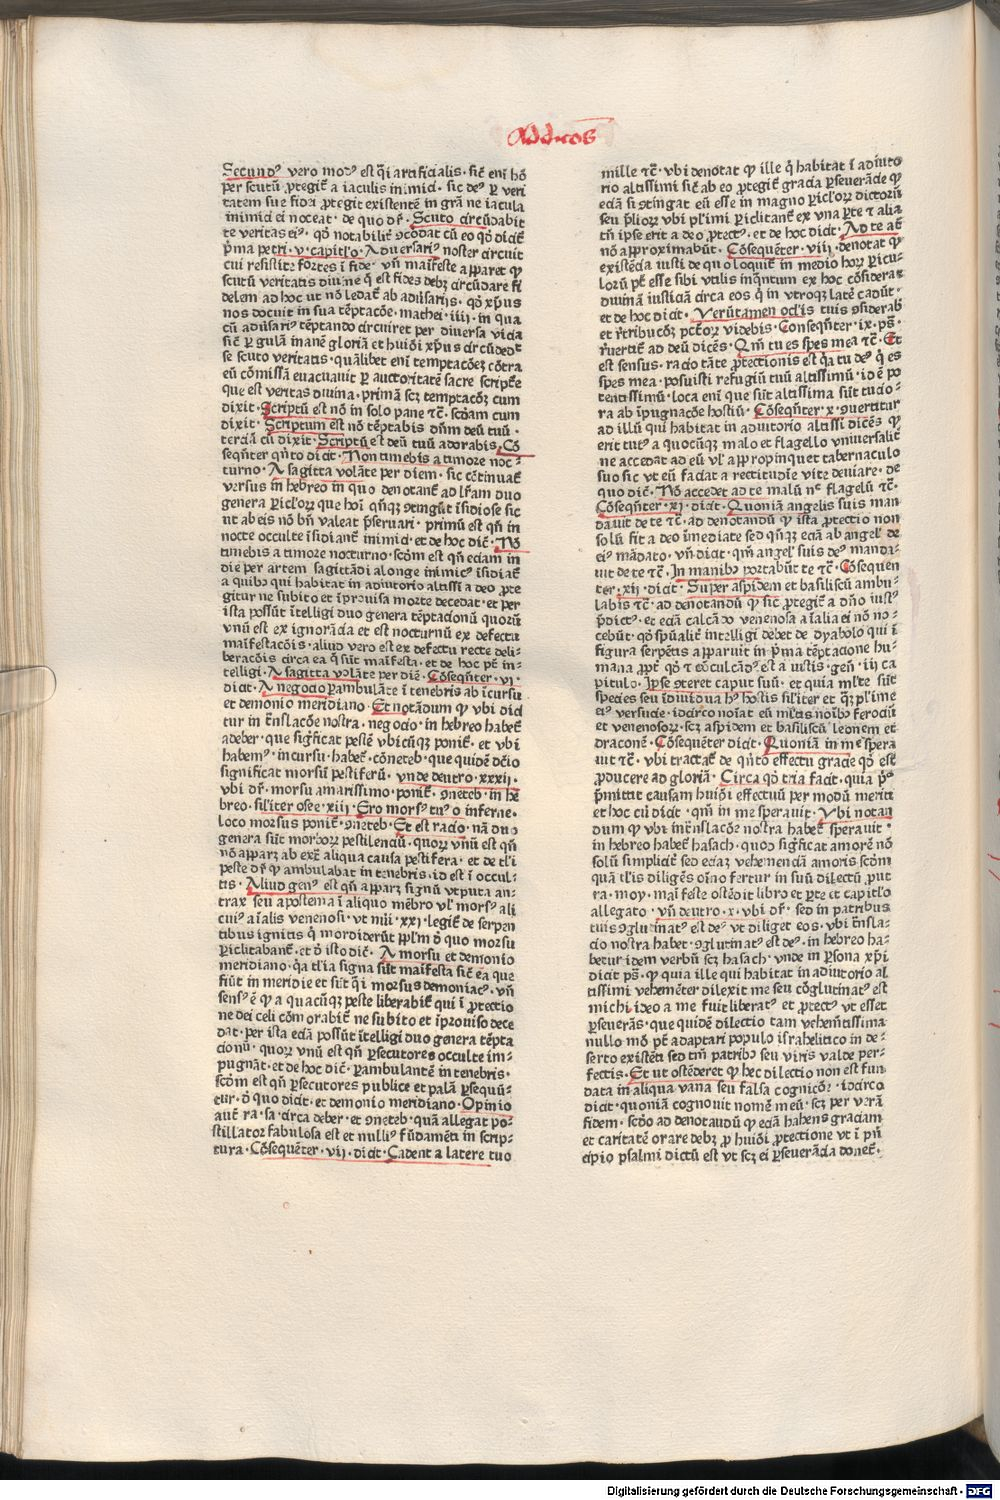 Addicos
Secundꝰ vero modꝰ est q̄i artificialis. sic̄ eni hō
per scutū ꝓtegit̄ a iaculis inimici. sic deꝰ ꝑ veri
tatem sue fidei ꝓtegit existentē in grā ne iacula
inimici ei noceat. de quo dr̄. Scuto circūdabit
te veritas eiꝰ. qd̓ notabilit̄ ꝯcordat cū eo qd̓ dicit̄
p̄ma petri. v. capitl̓o. Aduersariꝰ noster circuit
cui resistite fortes ī fide. vn̄ maīfeste apparet ꝙ
scutū veritatis diuine q̄ est fides debꝫ circūdare fi
delem ad hoc ut nō ledat̄ ab adūsariis. qd̓ xp̄us
nos docuit in sua tēptacōe. mathei. iiii. in qua
cū adūsariꝰ tēptando circuiret per diuersa vicia
sic̄ ꝑ gulā inanē gloriā et huiōi xp̄us circūdedt̄
se scuto veritatis. quālibet eni temptacōeꝫ cōtra
eū cōmissā euacuauit ꝑ auctoritatē sacre scripte̅
que est veritas diuina. primā scꝫ temptacōeꝫ cum
dixit. Scriptū est nō in solo pane ⁊c̄. scd̄am cum
dixit. Scriptum est nō tēptabis dn̄m deū tuū.
terciā cū dixit. Scriptū est deū tuū adorabis. Cō
seqn̄ter qn̄to dicit. Non timebis a timore noc⸗
turno. A sagitta volāte per diem. sic continuat̄
versus in hebreo in quo denotant̄ ad lr̄am duo
genera ꝑicl̓oꝝ que hoi qn̄qꝫ ꝯtingūt īsidiose sic
ut ab eis nō bn̄ valeat p̄seruari. primū est qn̄ in
nocte occulte īsidiant̄ inimici. et de hoc dic̄. Nō
timebis a timore nocturno. scd̓m est qn̄ eciam in
die per artem sagittādi a longe inimicꝰ īsidiat̄
a quibꝰ qui habitat in adiutorio altissi a deo ꝓte
gitur ne subito et īprouisa morte decedat. et per
ista possūt ītelligi duo genera tēptacionū quoꝝ
vnū est ex ignorācia et est nocturnū ex defectu
maīfestacōis. aliud vero est ex defectu recte deli⸗
beracōis circa ea q̄ sūt maīfesta. et de hoc pt̄ in⸗
telligi. A sagitta volāte per diē. Cōseqn̄ter. vi.
dicit. A negocio ꝑambulāte ī tenebris ab īcursu
et demonio meridiano. Et notādum ꝙ vbi dici
tur in trn̄slacōe nostra. negocio. in hebreo habet̄
a deber. que sigficat pestē vbicūqꝫ ponit̄. et vbi
habemꝰ. incursu. habet̄. cōneteb. que quidē dcīo
significat morsū pestiferū. vnde deutro. xxxii.
vbi dr̄. morsu amarissimo. ponit̄. ꝯneteb. in he
breo. sil̓iter osee. xiii. Ero morsꝰ tuꝰ o inferne.
loco morsus ponit̄. ꝯneteb. Et est racio. nā duo
genera sūt morboꝝ pestilenciū. quoꝝ vnū est qn̄
nō apparꝫ ab extr̄ aliqua causa pestifera. et de tl̓i
peste dr̄ ꝙ ambulabat in tenebris. id est ī occul⸗
tis. Aliud genꝰ est qn̄ apparꝫ signū vtputa an⸗
trax seu apostema ī aliquo mēbro vl̓ morsꝰ ali
cuiꝰ aīalis venenosi. vt nūi. xxi. legit̄ de serpen
tibus ignitis q̄ mordiderūt ppl̓m d̓ quo morsu
ꝑiclitabant̄. et d̓ isto dic̄. A morsu et demonio
meridiano. qa tl̓ia signa sūt maīfesta sic̄ ea que
fiūt in meridie et sūt q̄i morsus demoniacꝰ. vn̄
sensꝰ ē ꝙ a quacūqꝫ peste liberabit̄ qui ī ꝓtectio
ne dei celi cōmorabit̄ ne subito et īprouiso dece
dat. per ista eciā possūt ītelligi duo genera tēpta
cionū. quoꝝ vnū est qn̄ ꝑsecutores occulte im⸗
pugnāt. et de hoc dic̄. ꝑambulantē in tenebris.
scd̓m est qn̄ ꝑsecutores publice et palā ꝑsequū⸗
tur. d̓ quo dicit. et demonio meridiano. Opinio
aut̄ ra. sa. circa deber. et ꝯneteb. quā allegat po⸗
stillator fabulosa est et nulliꝰ fūdamēti in scrip⸗
tura. Cōsequēter. vii. dicit. Cadent a latere tuo
mille ⁊c̄. vbi denotat ꝙ ille q̄ habitat ī adiuto
rio altissimi sic̄ ab eo ꝓtegit̄ gracia ꝑseuerācie ꝙ
eciā si ꝯtingat eū esse in magno ꝑicl̓oꝝ dictoriū
seu p̄lioꝝ vbi pl̓imi ꝑiclitant̄ ex vna ꝑte ⁊ alia
tn̄ ipse erit a deo ꝓtectꝰ. et de hoc dicit. Ad te at̄
nō approximabūt. Cōsequēter. viii. denotat ꝙ
existēcia iusti de quo loquit̄ in medio hoꝝ ꝑicu⸗
loꝝ pt̄ esse sibi vtilis inq̄ntum ex hoc cōsiderat
diuinā iusticiā circa eos q̄ in vtroqꝫ latē cadūt.
et de hoc dicit. Verūtamen oclis tuis ꝯsiderab̄
et r̄tribucōeꝫ pctōꝝ videbis. Conseqn̄ter. ix. ps̄.
ꝯuertit̄ ad deū dicēs. Qm̄ tu es spes mea ⁊c̄. Et
est sensus. racio tāte ꝓtectionis est qa tu deꝰ q̄ es
spes mea. posuisti refugiū tuū altissimū. id ē po
tentissimū. loca eni que sūt altissima sūt tucio⸗
ra ab īpugnacōe hostiū. Cōseqn̄ter. x. ꝯuertitur
ad illū qui habitat in adiutorio altissi dicēs ꝙ
erit tutꝰ a quocūqꝫ malo et flagello vniuersalit̄
ne accedat ad eū vl̓ appropinquet tabernaculo
suo sic vt eū faciat a rectitudīe vite deuiare. de
quo dic̄. Nō accedet ad te malū nec̄ flagelū ⁊c̄.
Cōseqn̄ter. xi. dicit. Quoniā angelis suis man
dauit de te ⁊c̄. ad denotandū ꝙ ista ꝓtectio non
solū fit a deo īmediate sed qn̄qꝫ eciā ab angel̓ de
eiꝰ mādato. vn̄ dicit. qm̄ angel̓ suis deꝰ manda⸗
uit de te ⁊c̄. In manibꝰ portabūt te ⁊c̄. Cōsequen
ter. xii. dicit. Super aspidem et basiliscū ambu⸗
labis ⁊c̄. ad denotandū ꝙ sic ꝓtegit̄ a dn̄o iustꝰ
p̄dictꝰ. et eciā calcādo venenosa aīalia ei nō no⸗
cebūt. qd̓ spūalit̄ intelligi debet de dyabolo qui ī
figura serpētis apparuit in p̄ma tēptacione hu⸗
mana ꝓpt̄ qd̓ ⁊ cōculcādꝰ est a iustis. gen̄. iii ca
pitulo. Ipse ꝯteret caput tuū. et quia ml̓te sūt
species seu īdiuidua hꝰ hostis sil̓iter et q̄ꝫ pl̓ime
eiꝰ versucie. idcirco noīat eū ml̓tis noībꝰ ferociū
et venenosoꝝ. scꝫ aspidem et basiliscū leonem et
draconē. Cōsequēter dicit. Quoniā in me spera
uit ⁊c̄. vbi tractat̄ de qn̄to effectu gracie qd̓ est
ꝓducere ad gloriā. Circa qd̓ tria facit. quia pꝰ
p̄mittit causam huiōi effectuū per modū meriti
et hoc cū dicit. qm̄ in me sperauit. Vbi notan
dum ꝙ vbi īn trn̄slacōe nostra habet̄ sperauit.
in hebreo habet̄ hasach. quod sigficat amorē nō
solū simplicit̄ sed eciaꝫ vehemenciā amoris scd̓m
quā tl̓is diligēs oīno fertur in suū dilectū prout
ra. moy. maīfeste ostēdit libro et ꝑte et capitl̓o
allegato. vn̄ deutro. x. vbi dr̄. sed in patribus
tuis ꝯglutinatꝰ est deꝰ vt diliget eos. vbi trn̄sla⸗
cio nostra habet ꝯglutinatꝰ est deꝰ. in hebreo ha⸗
betur idem verbū scꝫ hasach. vnde in ꝑsona xp̄i
dicit ps̄. ꝙ quia ille qui habitat in adiutorio al
tissimi vehemēter dilexit me seu cōglutinatꝰ est
michi ideo a me fuit liberatꝰ et ꝓtectꝰ vt esset
ꝑseuerās. que quidē dilectio tam vehem̄tissima
nullo mō pt̄ adaptari populo israhelitico in de⸗
serto existēti sed tm̄ patribꝰ seu viris valde per⸗
fectis. Et ut ostēderet ꝙ hec dilectio non est fun
data in aliqua vana seu falsa cognicōe. idcirco
dicit. quoniā cognouit nomē meū. scꝫ per verā
fidem. scd̓o ad denotandū ꝙ eciā habens graciam
et caritatē orare debꝫ ꝓ huiōi ꝓtectione vt ī pn̄
cipio psalmi dictū est vt scꝫ ei ꝑseuerācia donet̄.
Digitalisierung gefördert durch die Deutsche Forschungsgemeinschaft - DFG